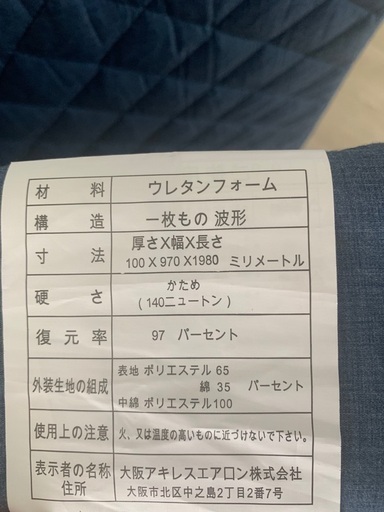 材料 ウレタンフォーム
構造 一枚もの 波形
寸法 厚さX幅X長さ
100 X 970 X1980 ミリメートル
硬さ かため
(140ニュートン)
復元率 97 パーセント
外装生地の組成 表地 ポリエステル 65
綿 35 パーセント
中綿 ポリエステル100
使用上の注意 火、又は温度の高いものに近づけないで下さい。
表示者の名称 大阪アキレスエアロン株式会社
住所 大阪市北区中之島2丁目2番7号